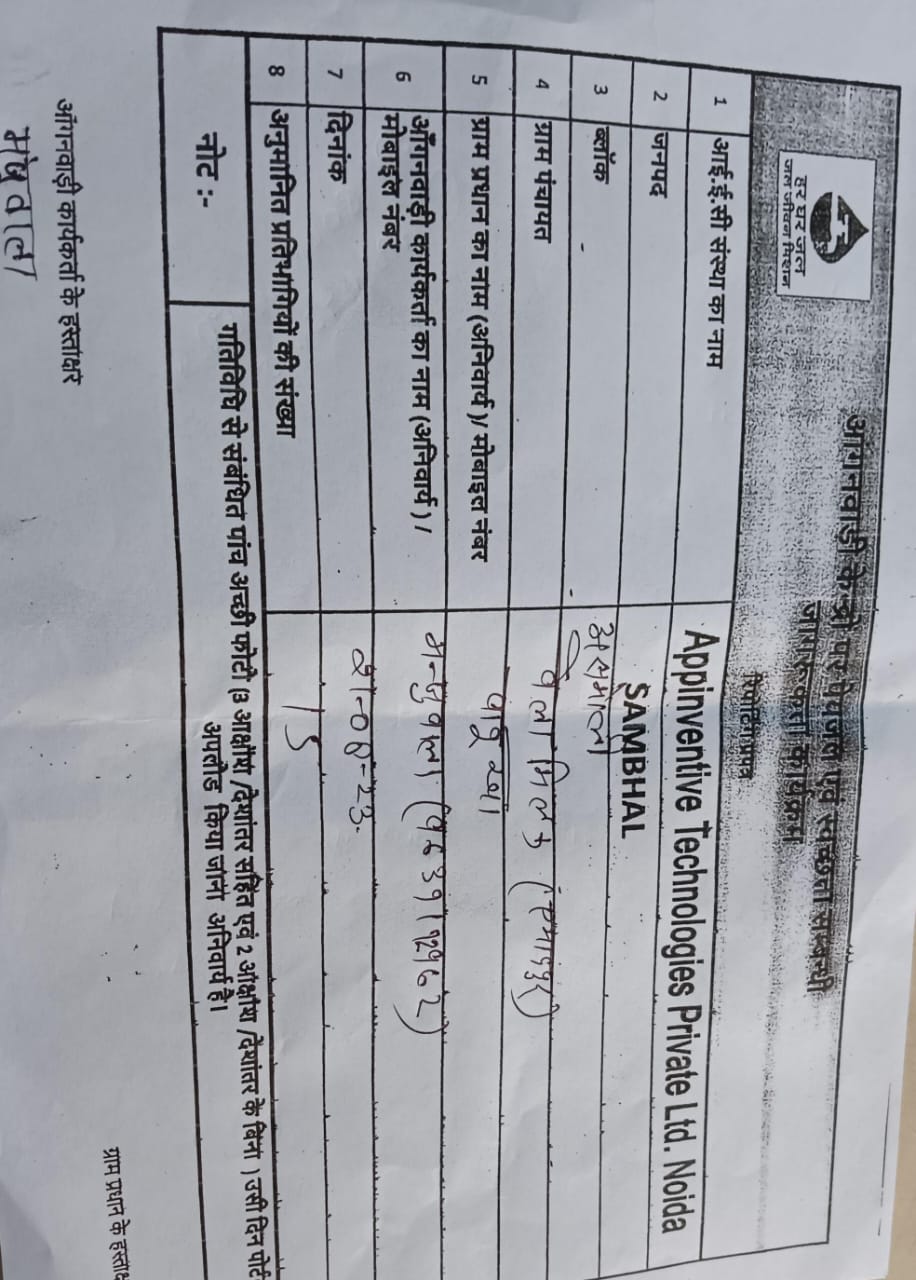 हर घर जल
जल जीवन मिशन
आंगनवाडी केन्द्रो पर पेयजल एवं स्वच्छता सम्बन्धी
जागरूकता कार्यक्रम
रिपोर्टिंग प्रपत्र
1 आई.ई.सी संस्था का नाम Appinventive Technologies Private Ltd. Noida
2 जनपद SAMBHAL
3 ब्लॉक असमोली
4 ग्राम पंचायत
5 ग्राम प्रधान का नाम (अनिवार्य)/ मोबाइल नंबर
6 आँगनवाड़ी कार्यकर्ता का नाम (अनिवार्य) /
मोबाइल नंबर
7 दिनांक
8 अनुमानित प्रतिभागियों की संख्या 15
नोट :- गतिविधि से संबंधित पांच अच्छी फोटो (3 अक्षांश /देशांतर सहित एवं 2 अक्षांश /देशांतर के बिना ) उसी दिन पोर्ट
अपलोड किया जाना अनिवार्य है।
आँगनवाड़ी कार्यकर्ता के हस्ताक्षर
ग्राम प्रधान के हस्ताक्ष